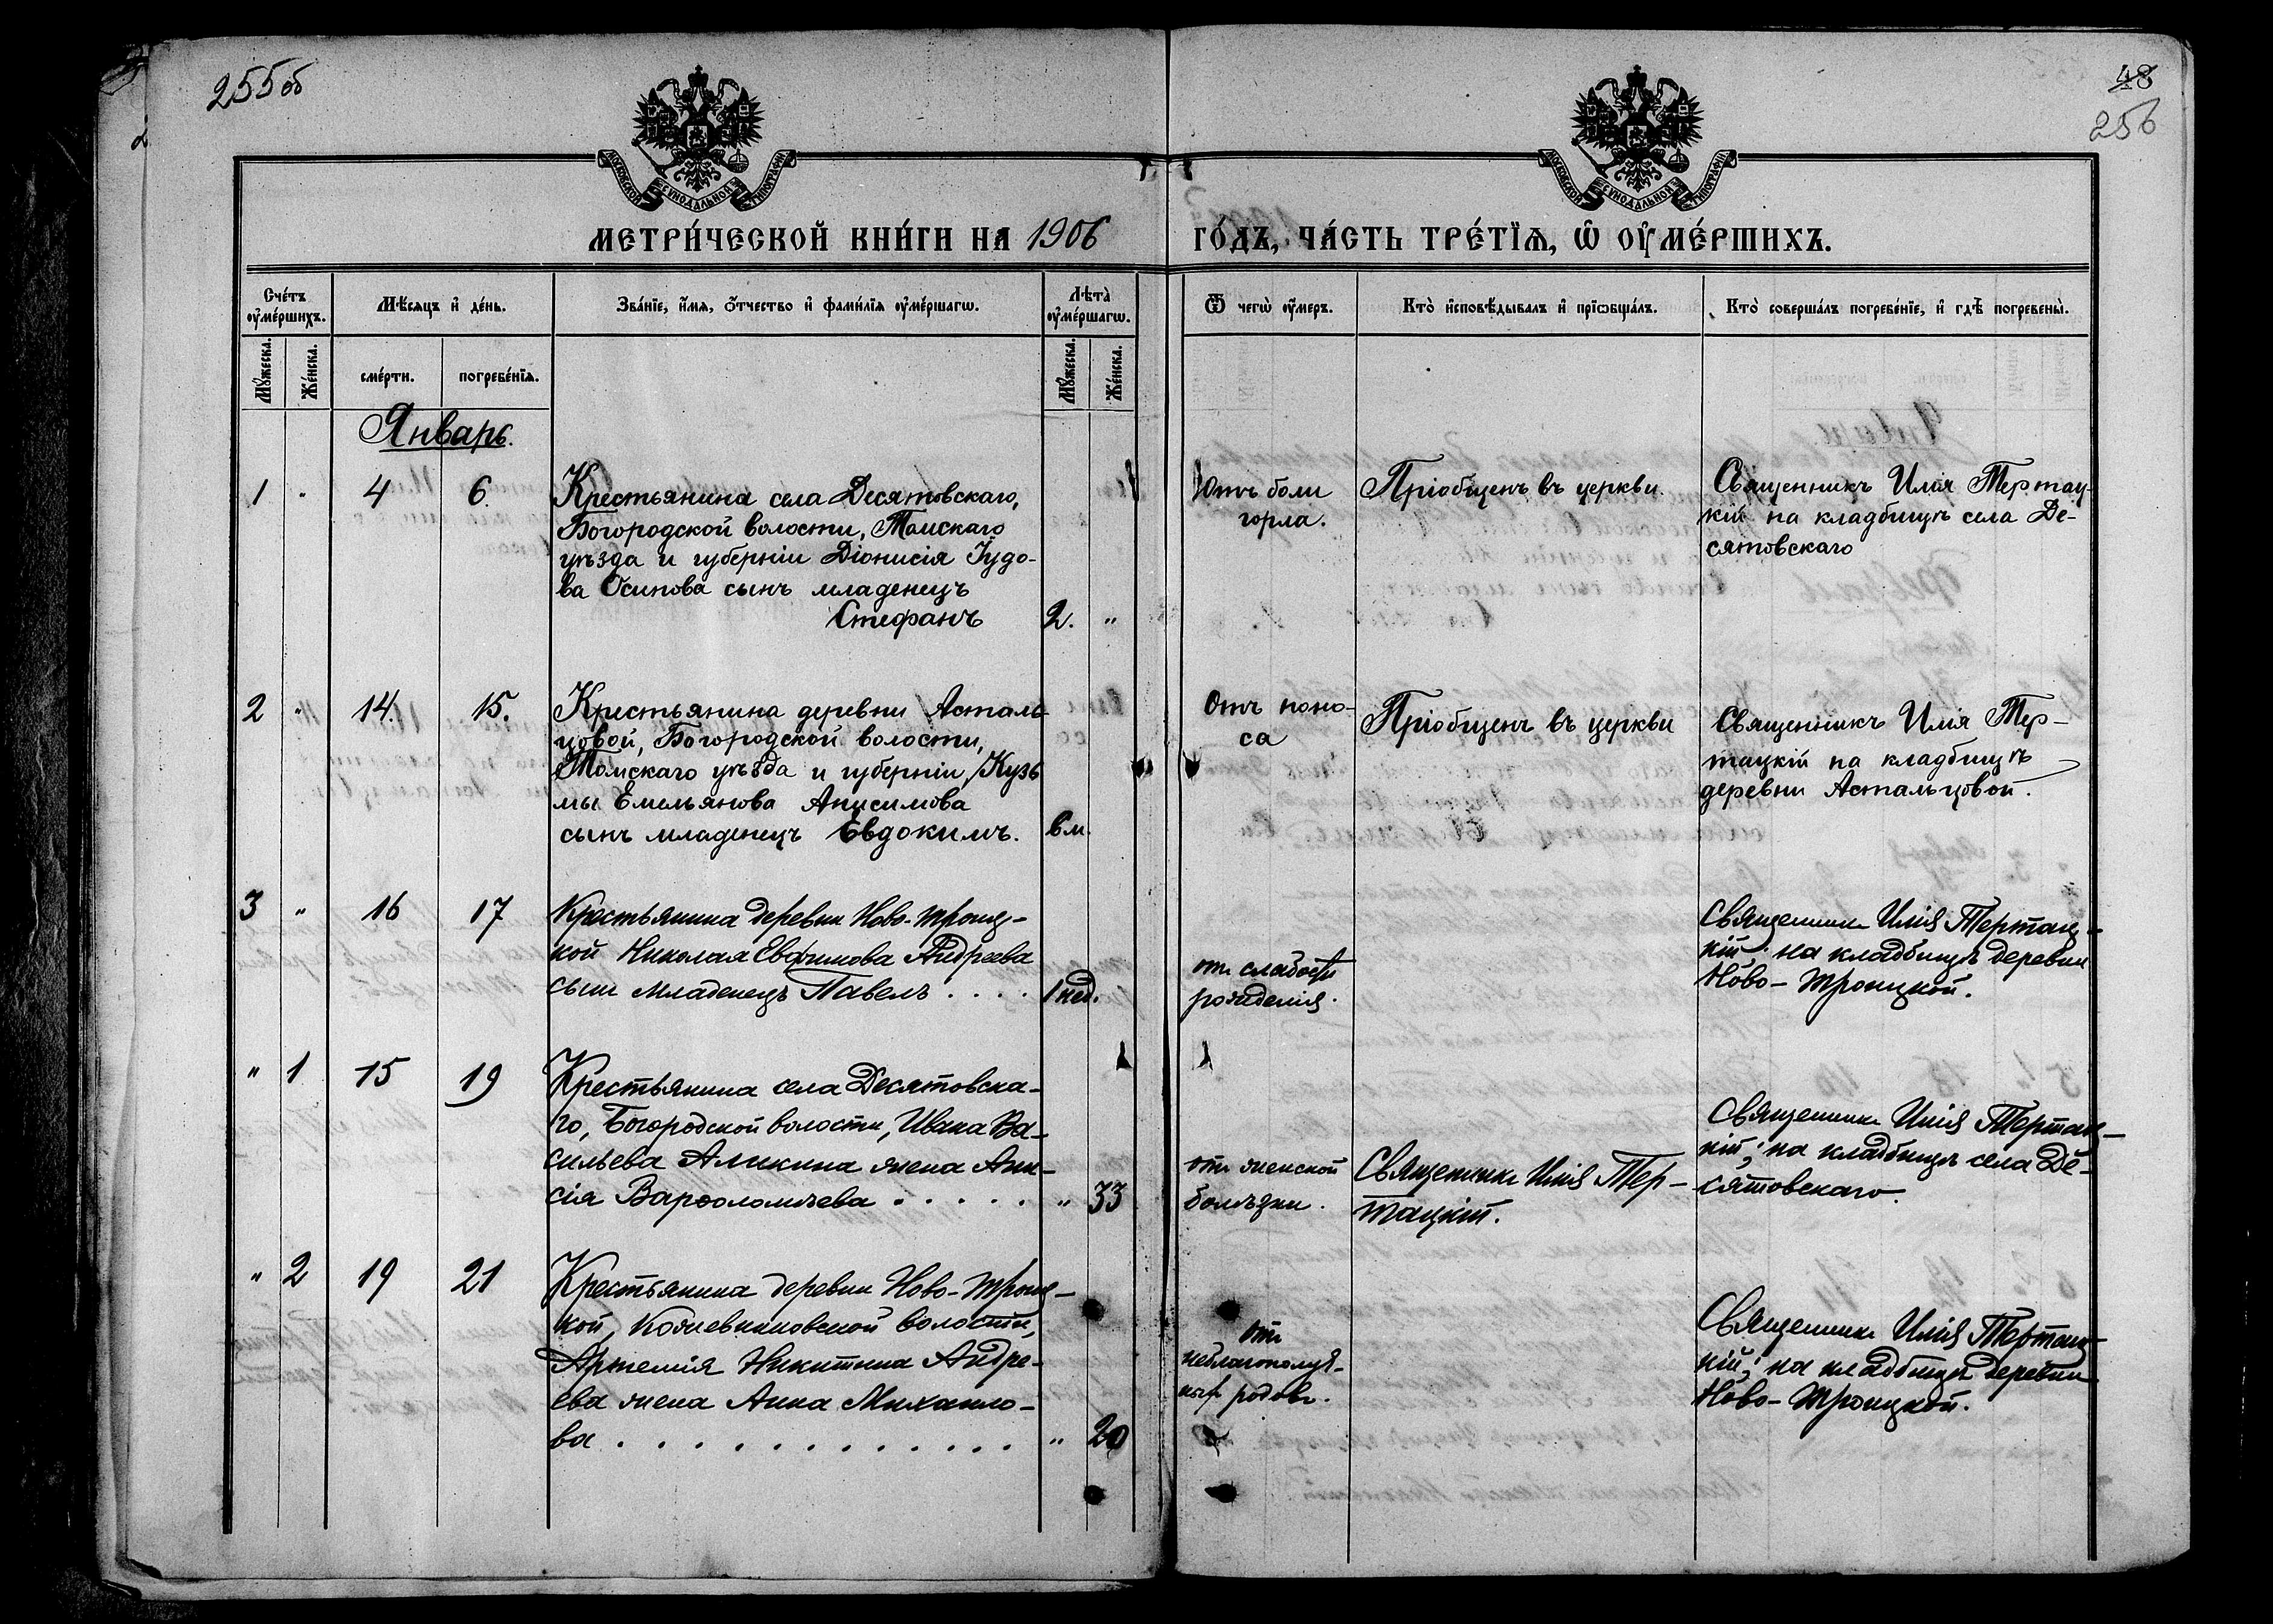 255об
48
256
МОСКОВСКОЙ СѴНОДАЛЬНОЙ ТИПОГРАФІИ
МОСКОВСКОЙ СѴНОДАЛЬНОЙ ТИПОГРАФІИ
МЕТРИ́ЧЕСКОЙ КНИ́ГИ НА 1906 ГО́ДЪ, ЧА́СТЬ ТРЕ́ТЇѦ, Ѿ ОУ҆МЕ́РШИХЪ.
Сче́тъ оу҆ме́ршихъ.
Мѣ́сяцъ и҆ де́нь.
Зва́нїе, и҆́мѧ, ѻ҆́тчество и҆ фами́лїѧ оу҆ме́ршагѡ.
Лѣ́та оу҆ме́ршагѡ.
Ѿ чегѡ̀ оу҆́меръ.
Кто̀ и҆сповѣ́дывалъ и҆ прїѡбща́лъ.
Кто̀ соверша́лъ погребе́нїе, и҆ гдѣ̀ погребены̀.
Мꙋ́жеска.
Же́нска.
сме́рти.
погребе́нїѧ.
Мꙋ́жеска.
Же́нска.
Январь.
1 " 4 6
Крестьянина села Десятовскаго,
Богородской волости, Томскаго
уѣзда и губерніи Діонисія Іудо-
ва Осипова сынъ младенецъ
Стефанъ 2. "
Отъ боли
горла.
Пріобщенъ въ церкви.
Священникъ Илія Тертац-
кій на кладбищѣ села Де-
сятовскаго
2 " 14. 15.
Крестьянина деревни Асталь-
цовой, Богородской волости,
Томскаго уѣзда и губерніи, Кузь
мы Емельянова Анисимова
сынъ младенецъ Евдокимъ. 6м.
Отъ поно-
са
Пріобщенъ въ церкви
Священникъ Илія Тер-
тацкій на кладбищѣ
деревни Астальцовой.
3 " 16 17
Крестьянина деревни Ново-Троиц-
кой Николая Евфимова Андреева
сынъ младенецъ Павелъ . . . . 1 нед.
отъ слабости
рожденія.
Священникъ Илія Тертац-
кій; на кладбищѣ деревни
Ново-Троицкой.
" 1 15 19
Крестьянина села Десятовска-
го, Богородской волости, Ивана Ва-
сильева Аликина жена Ани-
сія Варѳоломѣева . . . . . " 33
отъ женской
болѣзни.
Священникъ Илія Тер-
тацкій.
Священникъ Илія Тертац-
кій; на кладбищѣ села Де-
сятовскаго.
" 2 19 21
Крестьянина деревни Ново-Троиц-
кой, Кожевниковской волости,
Артемія Никитина Андре-
ева жена Анна Михаило-
ва . . . . . . . . . . . . " 20
отъ
неблагополуч-
ныхъ родовъ.
Священникъ Илія Тертац-
кій; на кладбищѣ деревни
Ново-Троицкой.